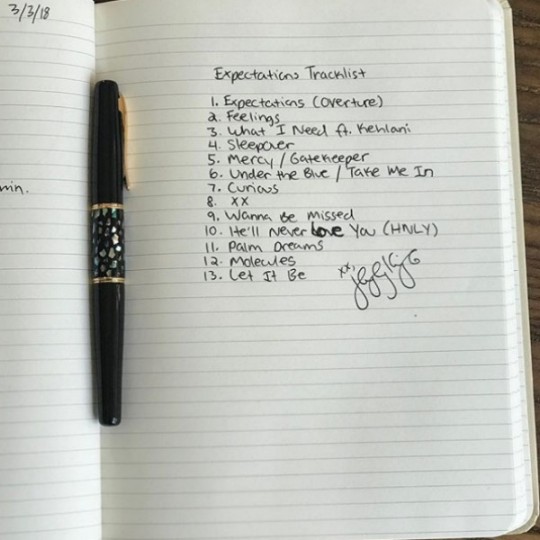 3/3/18
min.
Expectations Tracklist
1. Expectations (Overture)
2. Feelings
3. What I Need ft. Kehlani
4. Sleepover
5. Mercy / Gatekeeper
6. Under the Blue / Take Me In
7. Curious
8. XX
9. Wanna Be Missed
10. He'll Never Love You (HNLY)
11. Palm Dreams
12. Molecules
13. Let It Be
xx,